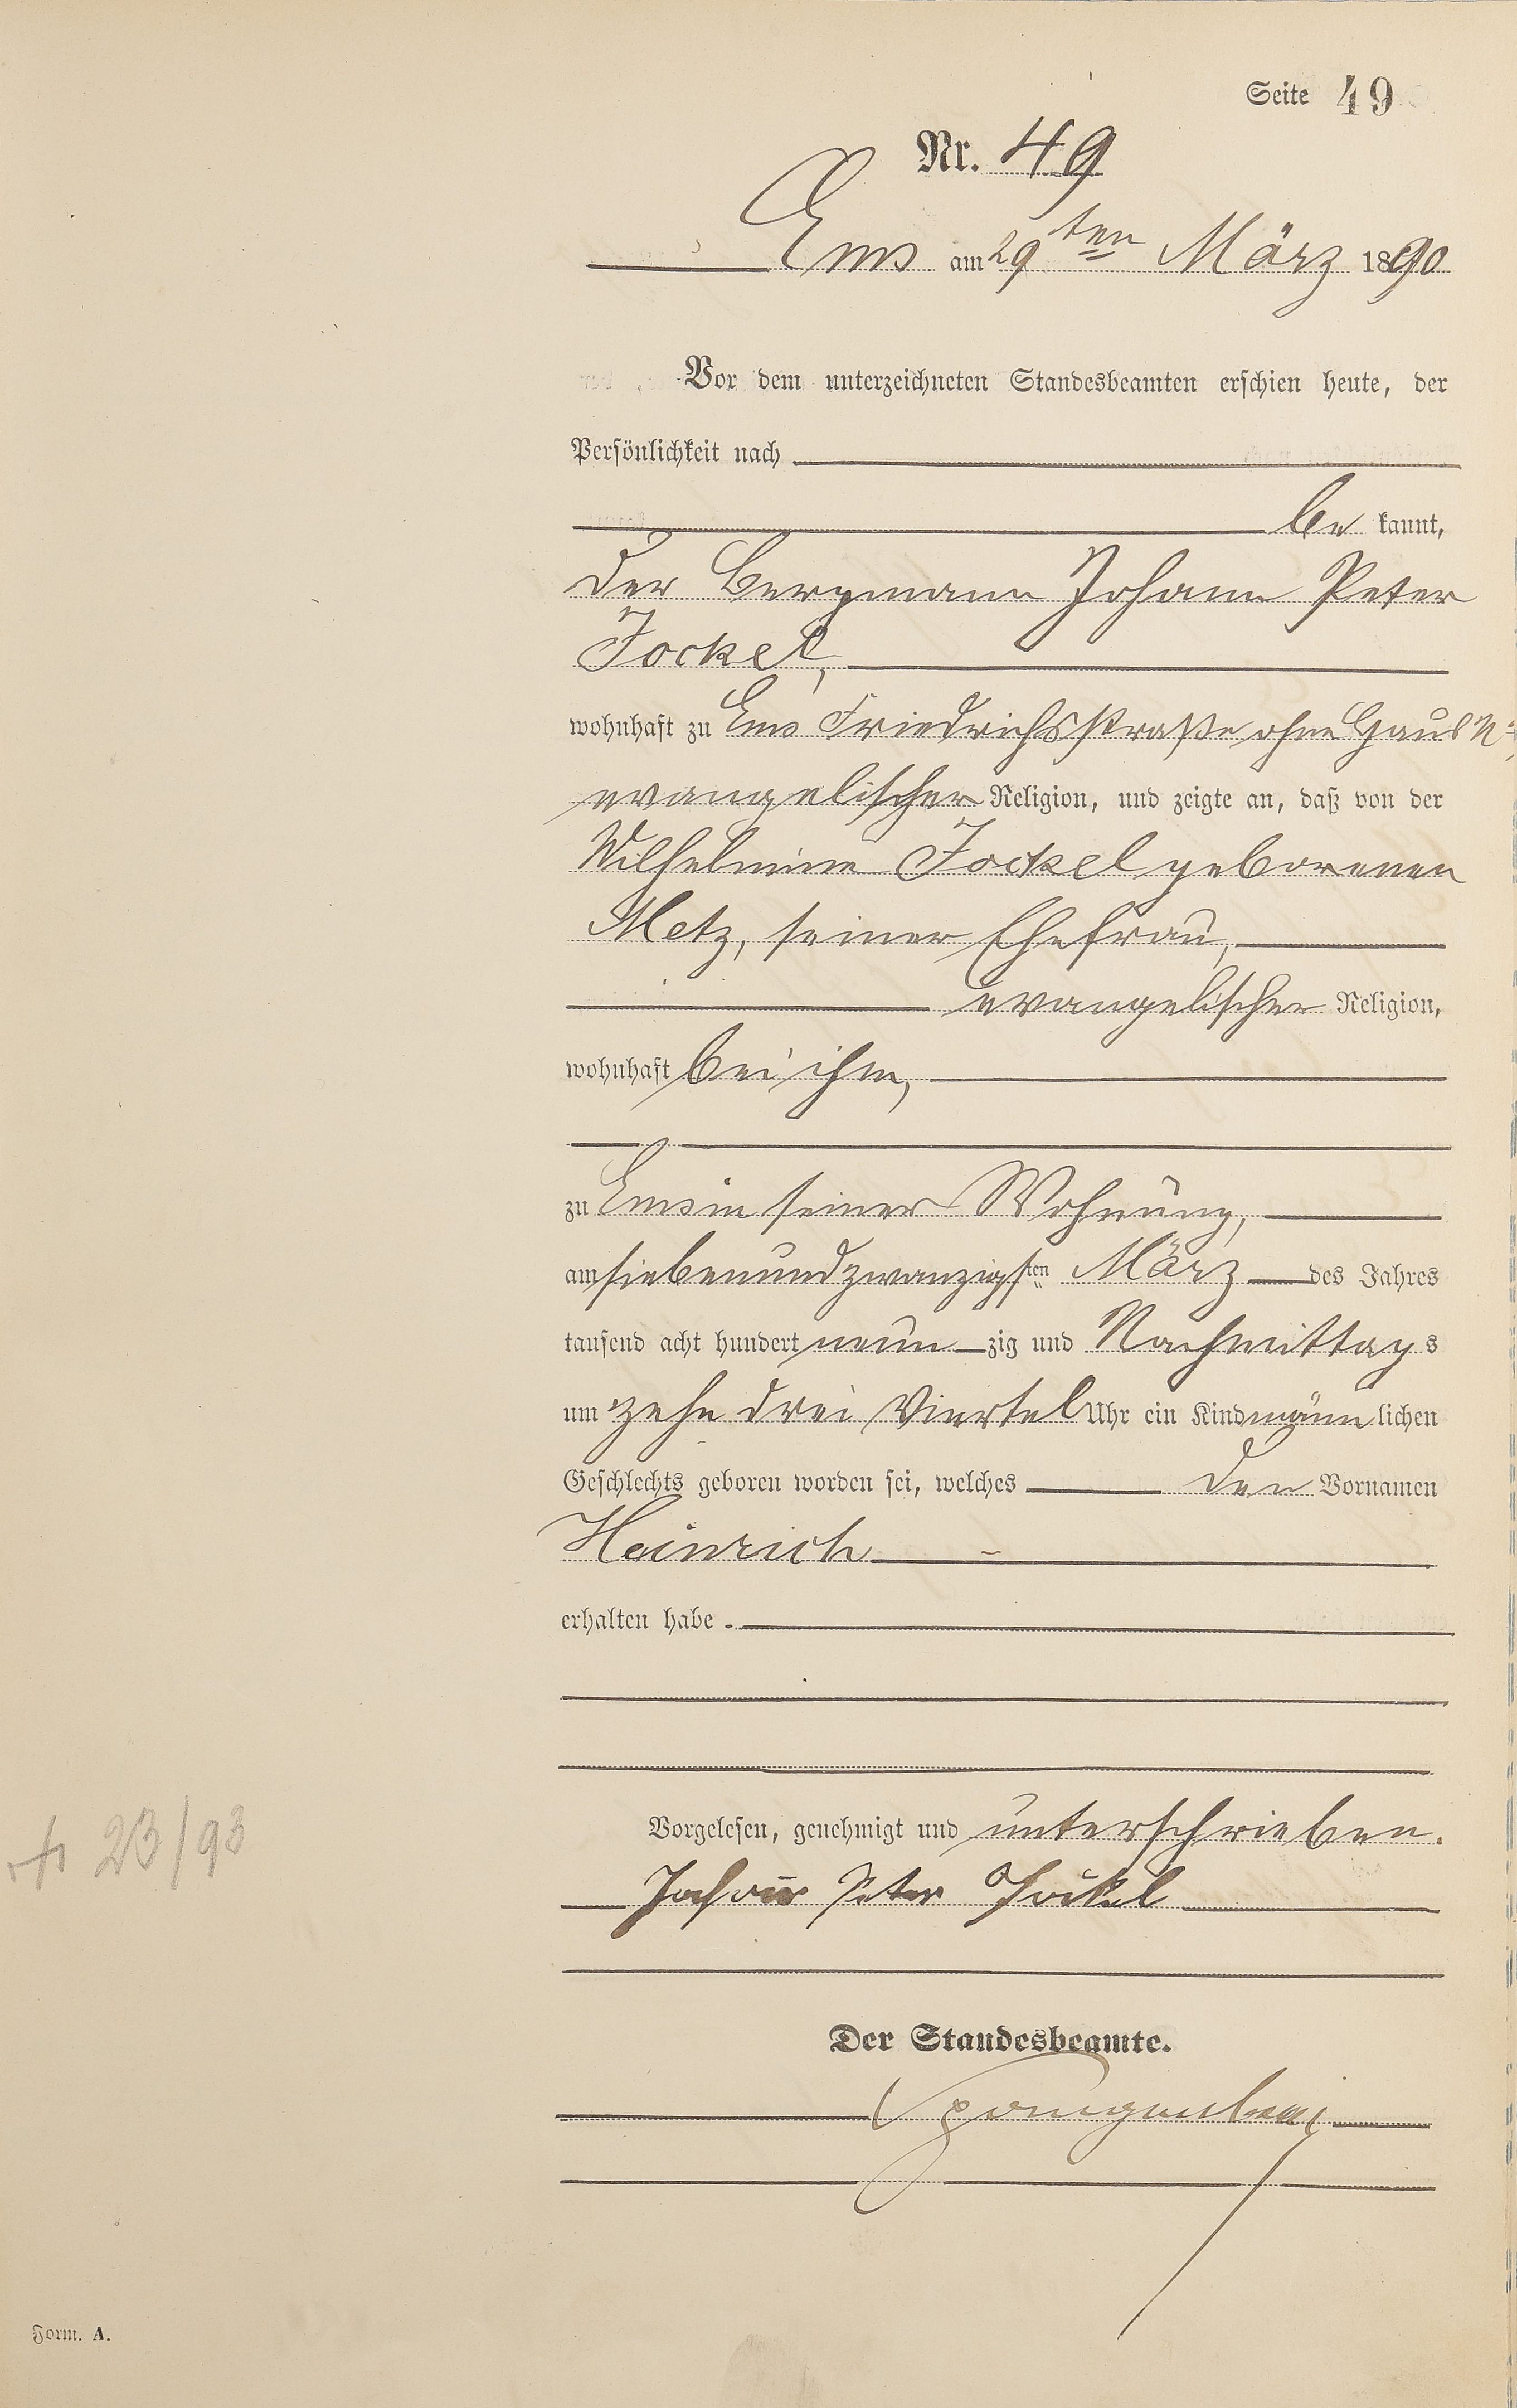 Seite 49
Nr. 49
Ems am 29ten März 1890
Vor dem unterzeichneten Standesbeamten erschien heute, der
Persönlichkeit nach
be kannt,
der Bergmann Johann Peter
Jockel,
wohnhaft zu Ems Friedrichsstraße ohne Haus N:
evangelischer Religion, und zeigte an, daß von der
Wilhelmine Jockel geborenen
Metz, seiner Ehefrau,
evangelischer Religion,
wohnhaft bei ihm,
zu Ems in seiner Wohnung,
am siebenundzwanzigsten März des Jahres
tausend acht hundert neun zig und Nachmittags
um zehn drei Viertel Uhr ein Kind männ lichen
Geschlechts geboren worden sei, welches den Vornamen
Heinrich
erhalten habe.
Vorgelesen, genehmigt und unterschrieben.
Johann Peter Jockel
Der Standesbeamte.
23/93
Form. A.